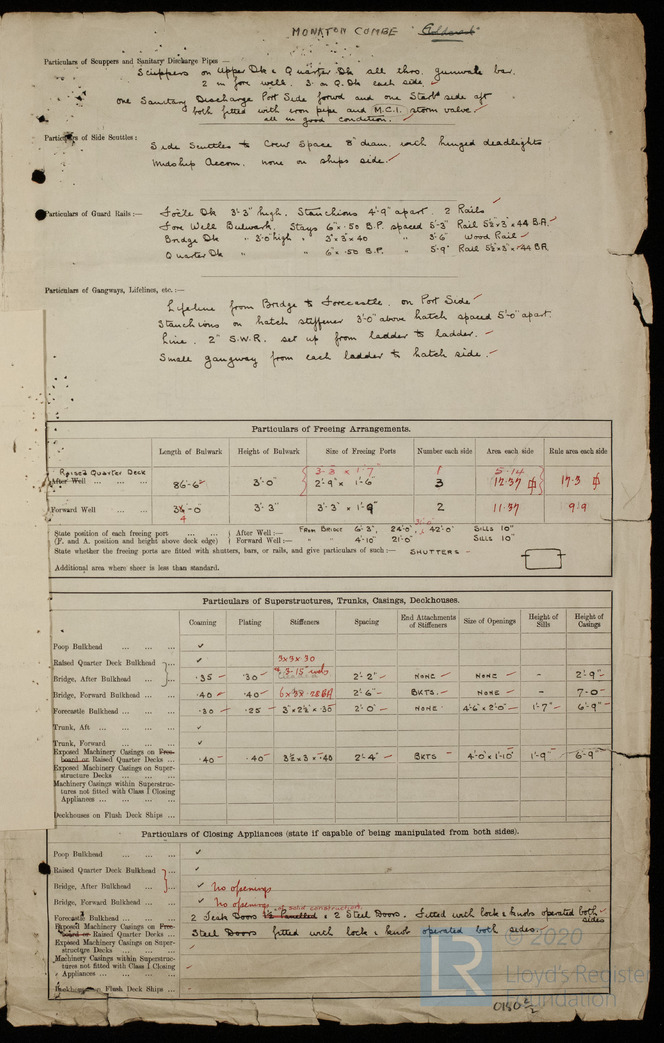 MONKTON COMBE
Particulars of Scuppers and Sanitary Discharge Pipes —
Scuppers on Upper Dk & Quarter Dk all thro. gunwale bar.
2 in fore well. 3 on Q. Dk each side
one Sanitary Discharge Port Side forwd and one Starbd side aft
both fitted with iron pipe and M.C.I. storm valve.
all in good condition.
Particulars of Side Scuttles:
Side Scuttles to Crew Space 8" diam. with hinged deadlights
Midship Accom. none on ships side.
Particulars of Guard Rails:—
Focle Dk 3'-3" high. Stanchions 4'-9" apart. 2 Rails
Fore Well Bulwark. Stays 6" x .50 B.P. spaced 5'-3" Rail 5½" x 3" x .44 B.A.
Bridge Dk " 3'-0" high " 3" x 3" x .40 " 3'-6" Wood Rail
Quarter Dk " " 6" x .50 B.P. " 5'-9" Rail 5½" x 3" x .44 B.A.
Particulars of Gangways, Lifelines, etc. :—
Lifeline from Bridge to Forecastle, on Port Side
Stanchions on hatch stiffener 3'-0" above hatch spaced 5'-0" apart.
Line. 2" S.W.R. set up from ladder to ladder.
Small gangway from each ladder to hatch side.
Particulars of Freeing Arrangements.
Length of Bulwark Height of Bulwark Size of Freeing Ports Number each side Area each side Rule area each side
Raised Quarter Deck 3-3 x 1-7 1 5-14
After Well ... ... ... 86'-6" 3'-0" 2'-9" x 1'-6" 3 12.37 17.3
Forward Well ... ... -0" 3'-3" 3'-3" x 1'-9" 2 11.37 9.9
4
State position of each freeing port ... ... After Well :— From Bridge 6'-3", 24'-0", 42'-0" Sills 10"
(F. and A. position and height above deck edge) Forward Well :— " " 4'-10" 21'-0" Sills 10"
State whether the freeing ports are fitted with shutters, bars, or rails, and give particulars of such :— SHUTTERS —
Additional area where sheer is less than standard.
Particulars of Superstructures, Trunks, Casings, Deckhouses.
Coaming Plating Stiffeners Spacing End Attachments of Stiffeners Size of Openings Height of Sills Height of Casings
Poop Bulkhead ... ... ...
Raised Quarter Deck Bulkhead ... 3x3x30
Bridge, After Bulkhead ... .35 .30 2'-2" NONE NONE - 2'-9"
Bridge, Forward Bulkhead ... .40 .40 2'-6" BKTS. NONE - 7-0"
Forecastle Bulkhead ... ... .30 .25 3" x 2½" x .30 2'-0" NONE 4'-6" x 2'-0" 1'-7" 6'-9"
Trunk, Aft ... ... ...
Trunk, Forward ... ... ...
Exposed Machinery Casings on Free-
board or Raised Quarter Decks ... .40 .40 3½ x 3 x .40 2'-4" BKTS 4'-0" x 1'-10" 1'-9" 6'-9"
Exposed Machinery Casings on Super-
structure Decks ... ... ...
Machinery Casings within Superstruc-
tures not fitted with Class I Closing
Appliances ... ... ... ...
Deckhouses on Flush Deck Ships ...
Particulars of Closing Appliances (state if capable of being manipulated from both sides).
Poop Bulkhead ... ... ...
Raised Quarter Deck Bulkhead ...
Bridge, After Bulkhead ... No openings
Bridge, Forward Bulkhead ... No openings
of solid construction.
Forecastle Bulkhead ... ... 2 Teak Doors 1½" Panelled & 2 Steel Doors. Fitted with lock & knobs operated both sides
Exposed Machinery Casings on Free-
board or Raised Quarter Decks ... Steel Doors fitted with lock & knob operated both sides.
Exposed Machinery Casings on Super-
structure Decks ... ... ...
Machinery Casings within Superstruc-
tures not fitted with Class I Closing
Appliances ... ... ... ...
Deckhouses on Flush Deck Ships ...
LR
© 2020
Lloyd's Register
Foundation